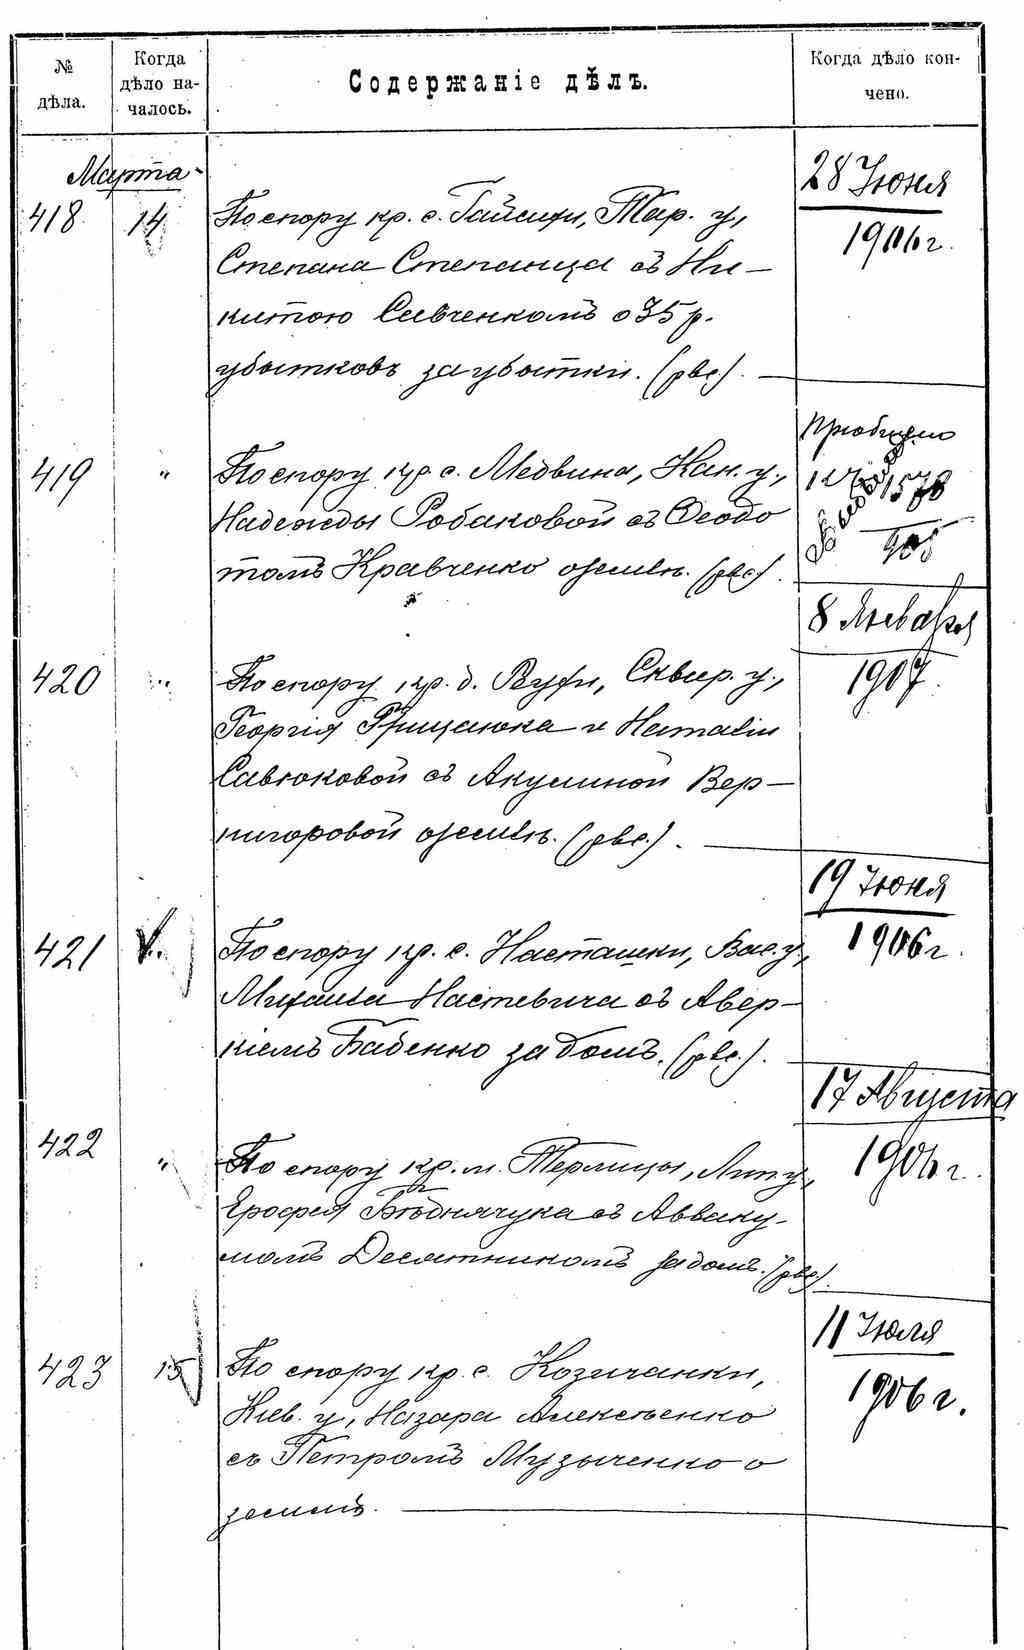 № дѣла.
Когда дѣло на-
чалось.
Содержаніе дѣлъ.
Когда дѣло кон-
чено.
Марта
418 14
По спору кр. с. Гайсихи, Тар. у,
Степана Степанца съ Ни-
китою Савченкомъ о 35 р.
убытковъ за убытки.
28 Іюня
1906 г.
419 "
По спору кр с. Медвина, Кан. у.,
Надежды Робаковой съ Ѳеодо
томъ Кравченко о землѣ.
Пріобщено
8 Января
1907.
420 "
По спору кр. д. Руды, Сквир. у.,
Георгія Грищенка и Наталіи
Савлюковой съ Акулиной Вер-
нигоровой о землѣ.
19 Іюня
1906 г.
421 "
По спору кр. с. Насташки, Вас. у.,
Михаила Настевича съ Авер-
кіемъ Бабенко за домъ.
17 Августа
1906 г.
422 "
По спору кр. м. Терлицы, Лип. у,
Ерофея Бѣднячука съ Авваку-
момъ Десятникомъ за домъ.
11 Іюля
1906 г.
423 15
По спору кр. с. Козичанки,
Кіев. у, Назара Алексѣенко
съ Петромъ Музыченко о
землѣ.